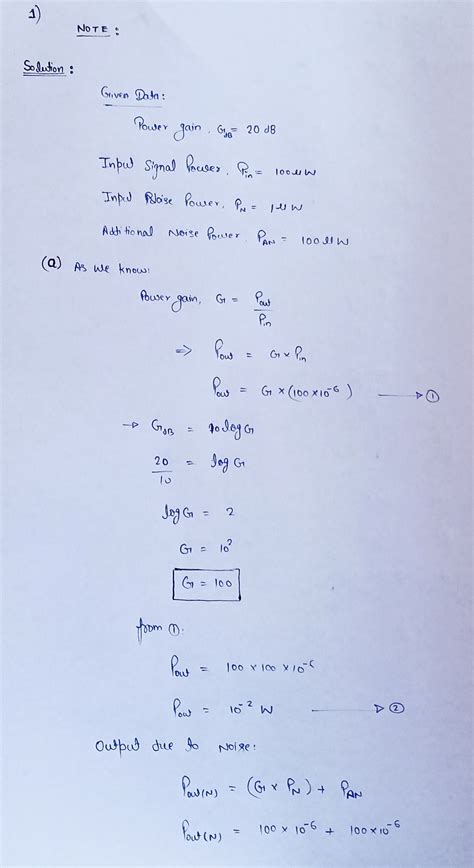 1)
NOTE :
Solution :
Given Data :
Power gain, G_dB = 20 dB
Input Signal Power, P_in = 100 μW
Input Noise Power, P_N = 1 μW
Additional Noise Power, P_AN = 100 μW
(a) As we know:
Power gain, G = P_out / P_in
⇒ P_out = G × P_in
P_out = G × (100 × 10^-6) → ①
→ G_dB = 10 log G
20/10 = log G
log G = 2
G = 10^2
G = 100
from ①:
P_out = 100 × 100 × 10^-6
P_out = 10^-2 W → ②
Output due to Noise:
P_out(N) = (G × P_N) + P_AN
P_out(N) = 100 × 10^-6 + 100 × 10^-6